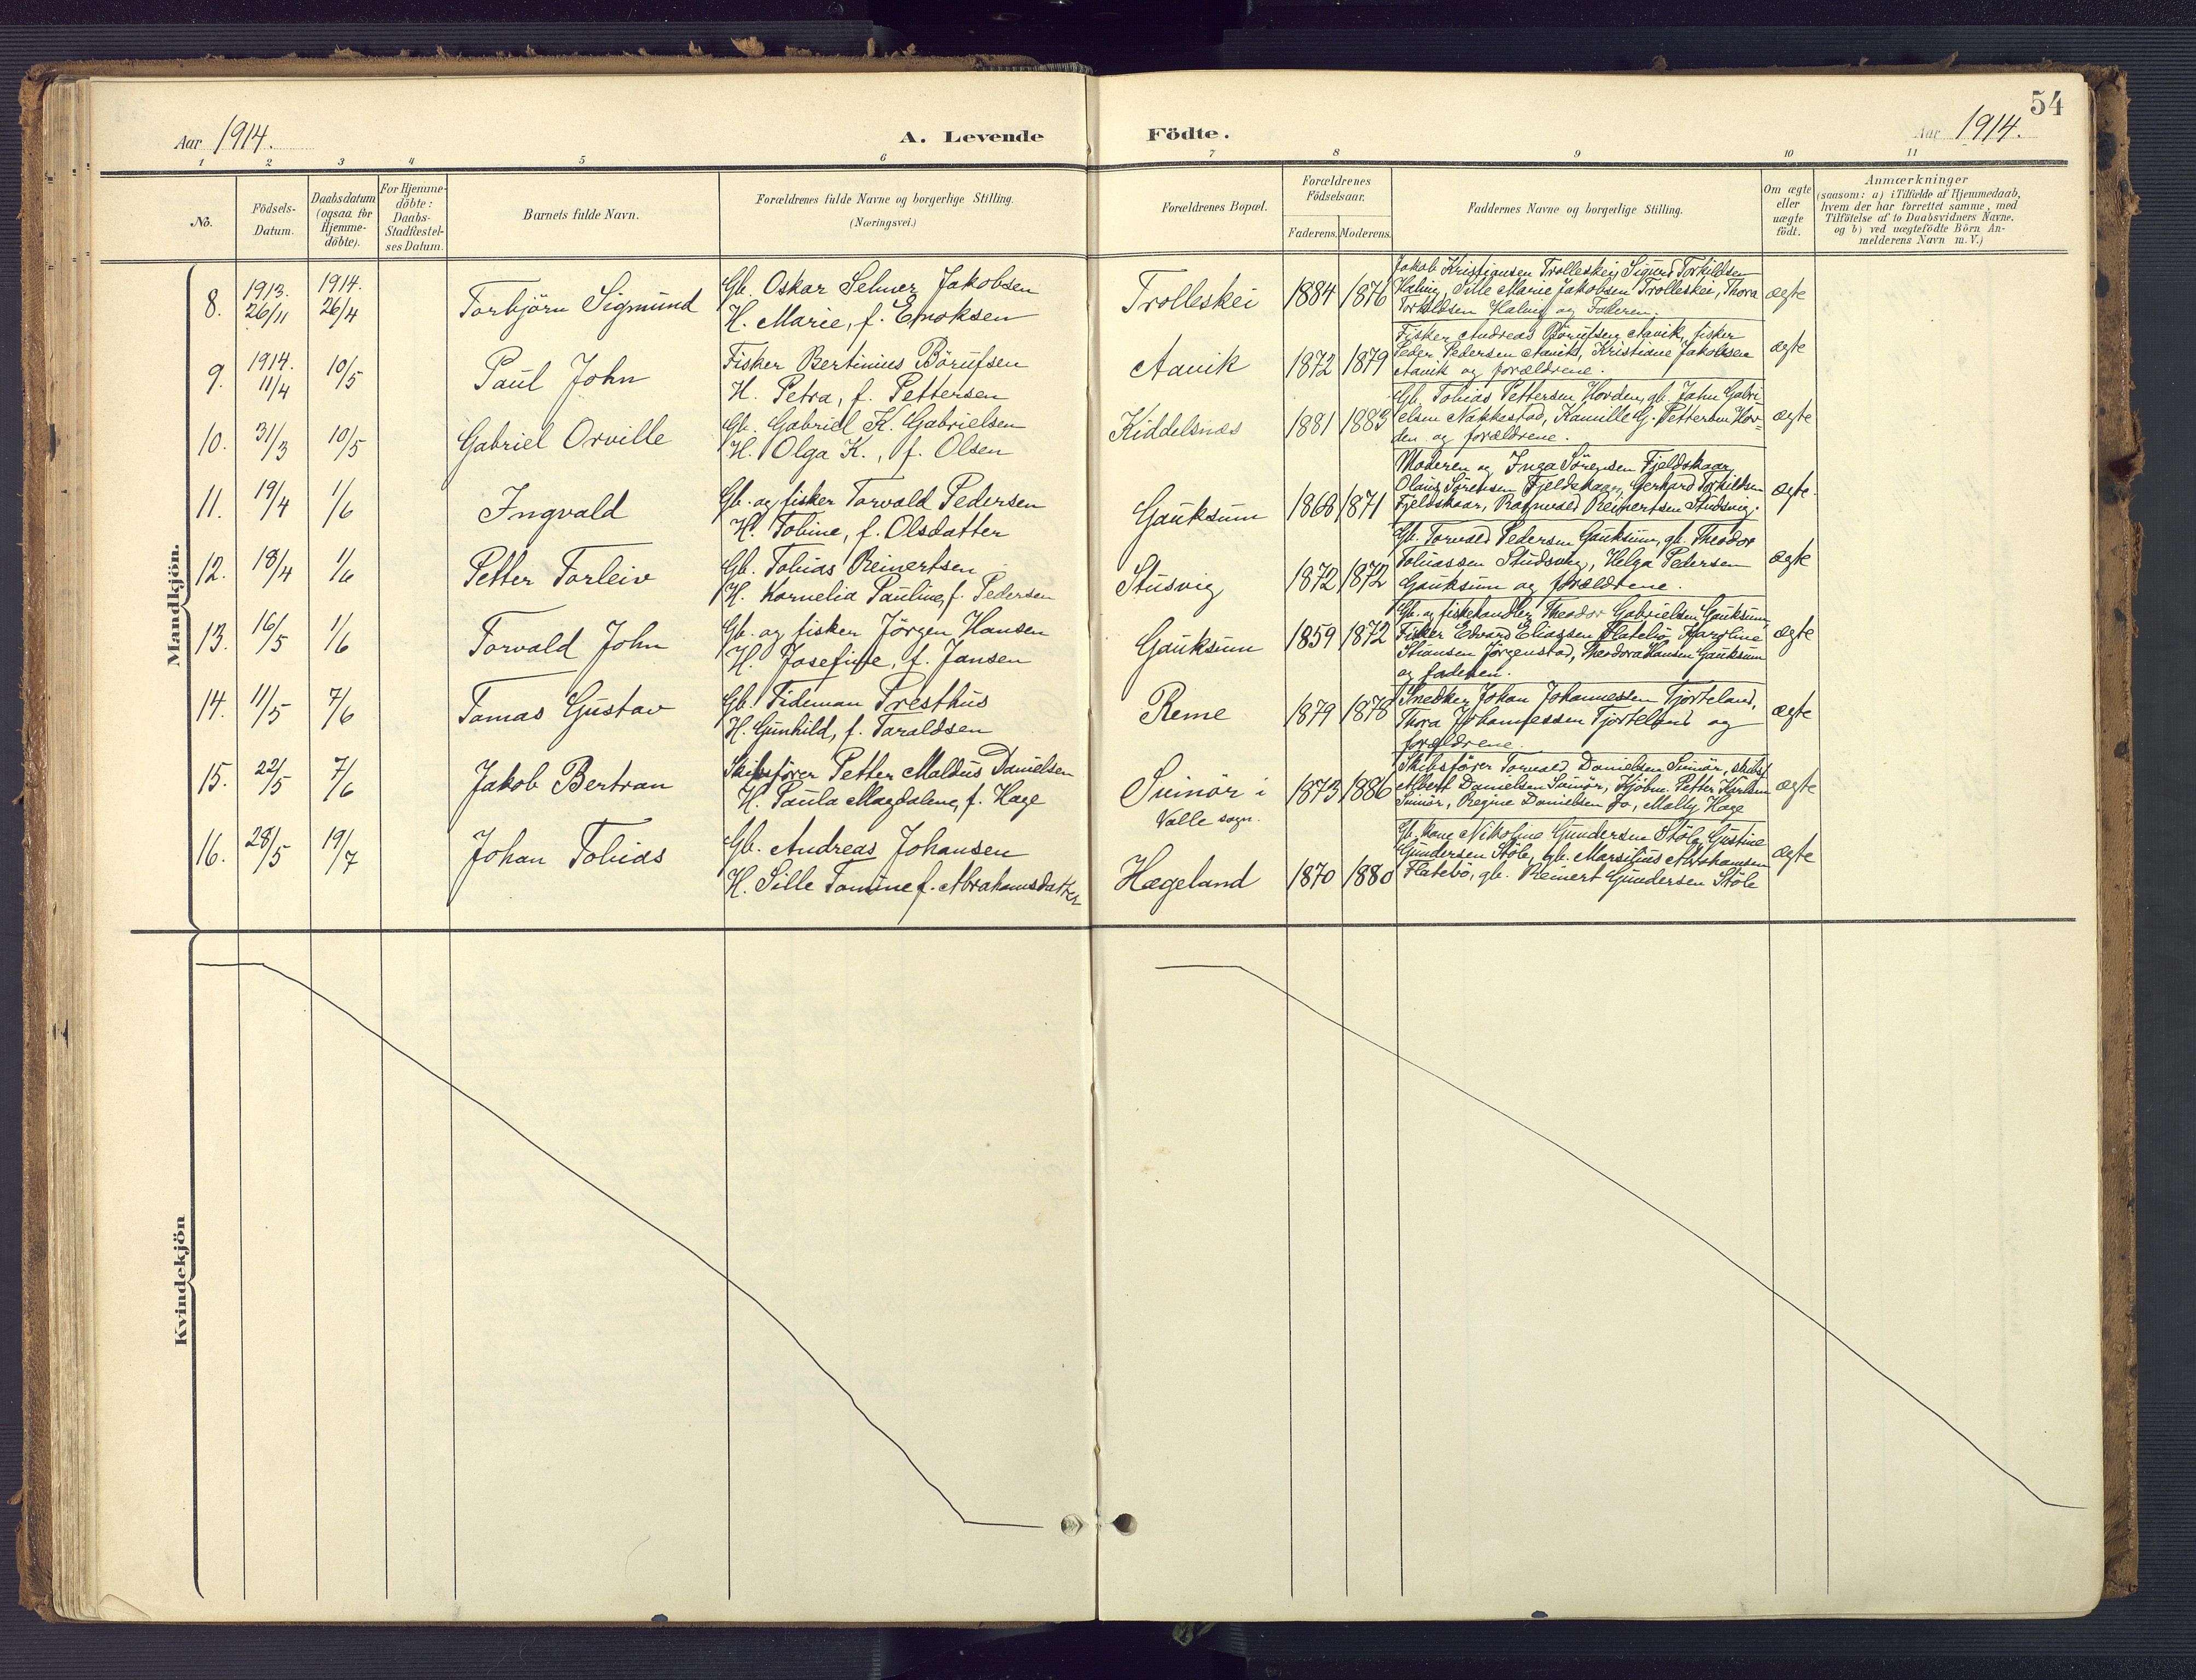 54
Aar 1914.
A. Levende Födte.
Aar 1914.
1 2 3 4 5 6 7 8 9 10 11
No.
Födsels-Datum.
Daabsdatum (ogsaa for Hjemme-döbte).
For Hjemme-döbte: Daabs-Stadfæstel-ses Datum.
Barnets fulde Navn.
Forældrenes fulde Navne og borgerlige Stilling.
(Næringsvei.)
Forældrenes Bopæl.
Forældrenes Födselsaar.
Faderens. Moderens.
Faddernes Navne og borgerlige Stilling.
Om ægte eller uægte födt.
Anmærkninger
(saasom: a) i Tilfælde af Hjemmedaab,
hvem der har forrettet samme, med
Tilföielse af to Daabsvidners Navne.
og b) ved uægtefödte Börn An-
melderens Navn m. V.)
Mandkjön.
8. 1913. 26/11 1914. 26/4 Torbjörn Sigmund
Gb. Oskar Selmer Jakobsen
H. Marie, f. Enoksen
Trolleskei 1884 1876
Jakob Kristiansen Trolleskei, Sigurd Torkildsen
Halvig, Sille Marie Jakobsen Trolleskei, Thora
Torkildsen Halvig og Faderen.
ægte
9. 1914. 11/4 10/5 Paul John
Fisker Bertinius Börufsen
H. Petra, f. Pettersen
Aavik 1872 1879
Fisker Andreas Börufsen Aavik, fisker
Peder Pedersen Aavik, Kristiane Jakobsen
Aavik og forældrene.
ægte
10. 31/3 10/5 Gabriel Orville
Gb. Gabriel K. Gabrielsen
H. Olga K., f. Olsen
Kiddelsnæs 1881 1883
Gb. Tobias Pettersen Hovden, gb. John Gabri
elsen Nakkestad, Kamille G. Pettersen Hov-
den og forældrene.
ægte
11. 19/4 1/6 Ingvald
Gb. og fisker Torvald Pedersen
H. Tobine, f. Olsdatter
Gauksum 1868 1871
Moderen og Inga Sörensen Fjeldskaar,
Olaus Sörensen Fjeldskaar, Gerhard Torkildsen
Fjeldskaar, Ragnvald Reinertsen Studsvig.
ægte
12. 18/4 1/6 Petter Torleiv
Gb. Tobias Reinertsen
H. Kornelia Pauline, f. Pedersen
Stusvig 1872 1872
Gb. Torvald Pedersen Gauksum, gb. Theodor
Tobiassen Studsvig, Helga Pedersen
Gauksum og forældrene.
ægte
13. 16/5 1/6 Torvald John
Gb. og fisker Jörgen Hansen
H. Josefine, f. Jansen
Gauksum 1859 1872
Gb. og fiskehandler Theodor Gabrielsen Gauksum,
Fisker Edvard Eliassen Flatebö, Karoline
Stiansen Jörgenstad, Theodora Hansen Gauksum
og faderen.
ægte
14. 11/5 7/6 Tomas Gustav
Gb. Tideman Presthus
H. Gunhild, f. Taraldsen
Reme 1879 1878
Snedker Johan Johannessen Tjorteland,
Thora Johannessen Tjorteland og
forældrene.
ægte
15. 22/5 7/6 Jakob Bertran
Skibsförer Petter Maldus Danielsen
H. Paula Magdalene, f. Hage
Svinör i
Valle sogn.
1873 1886
Skibsförer Torvald Danielsen Svinör, skibsf
Albert Danielsen Svinör, Kjöbm. Petter Karlsen
Svinör, Regine Danielsen Do, Mally Hage
ægte
16. 28/5 19/7 Johan Tobias
Gb. Andreas Johansen
H. Sille Tomine f. Abrahamsdatter
Hægeland 1870 1880
Gb. kone Nikoline Gundersen Stöle, Gustine
Gundersen Stöle, gb. Marsilius Abrahamsen
Flatebö, gb. Reinert Gundersen Stöle
ægte
Kvindekjön